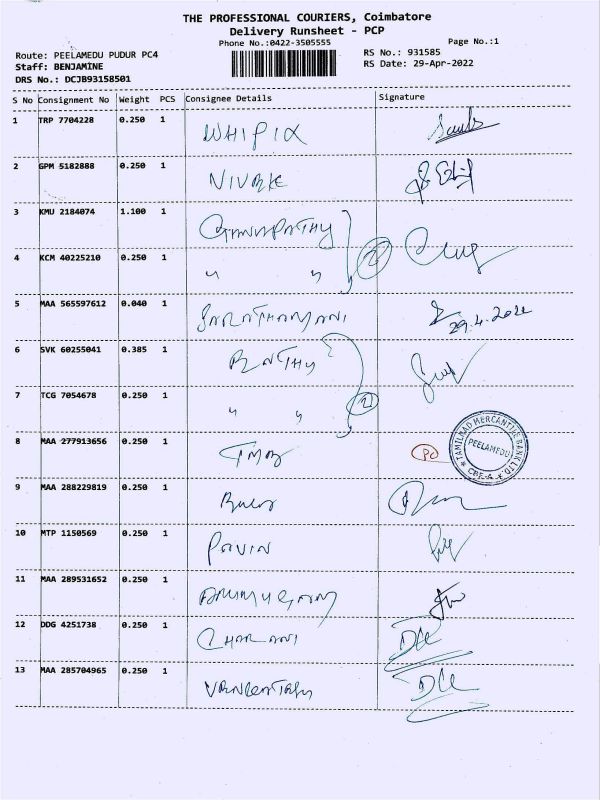 THE PROFESSIONAL COURIERS, Coimbatore
Delivery Runsheet - PCP
Phone No.:0422-3505555
Page No.:1
Route: PEELAMEDU PUDUR PC4
RS No.: 931585
Staff: BENJAMINE
RS Date: 29-Apr-2022
DRS No.: DCJB93158501
S No Consignment No Weight PCS Consignee Details Signature
1 TRP 7704228 0.250 1 WHIPIX
2 GPM 5182888 0.250 1
3 KMU 2184074 1.100 1 GANAPATHY
4 KCM 40225210 0.250 1 " " 2
5 MAA 565597612 0.040 1 SARATHAMANI 29.4.2022
6 SVK 60255041 0.385 1
7 TCG 7054678 0.250 1 " " 2
8 MAA 277913656 0.250 1 TMB TAMILNAD MERCANTILE BANK LTD. PEELAMEDU CBE-4
9 MAA 288229819 0.250 1
10 MTP 1150569 0.250 1 PAVIN
11 MAA 289531652 0.250 1 ARUMUGAM
12 DDG 4251738 0.250 1 CHARANI
13 MAA 285704965 0.250 1